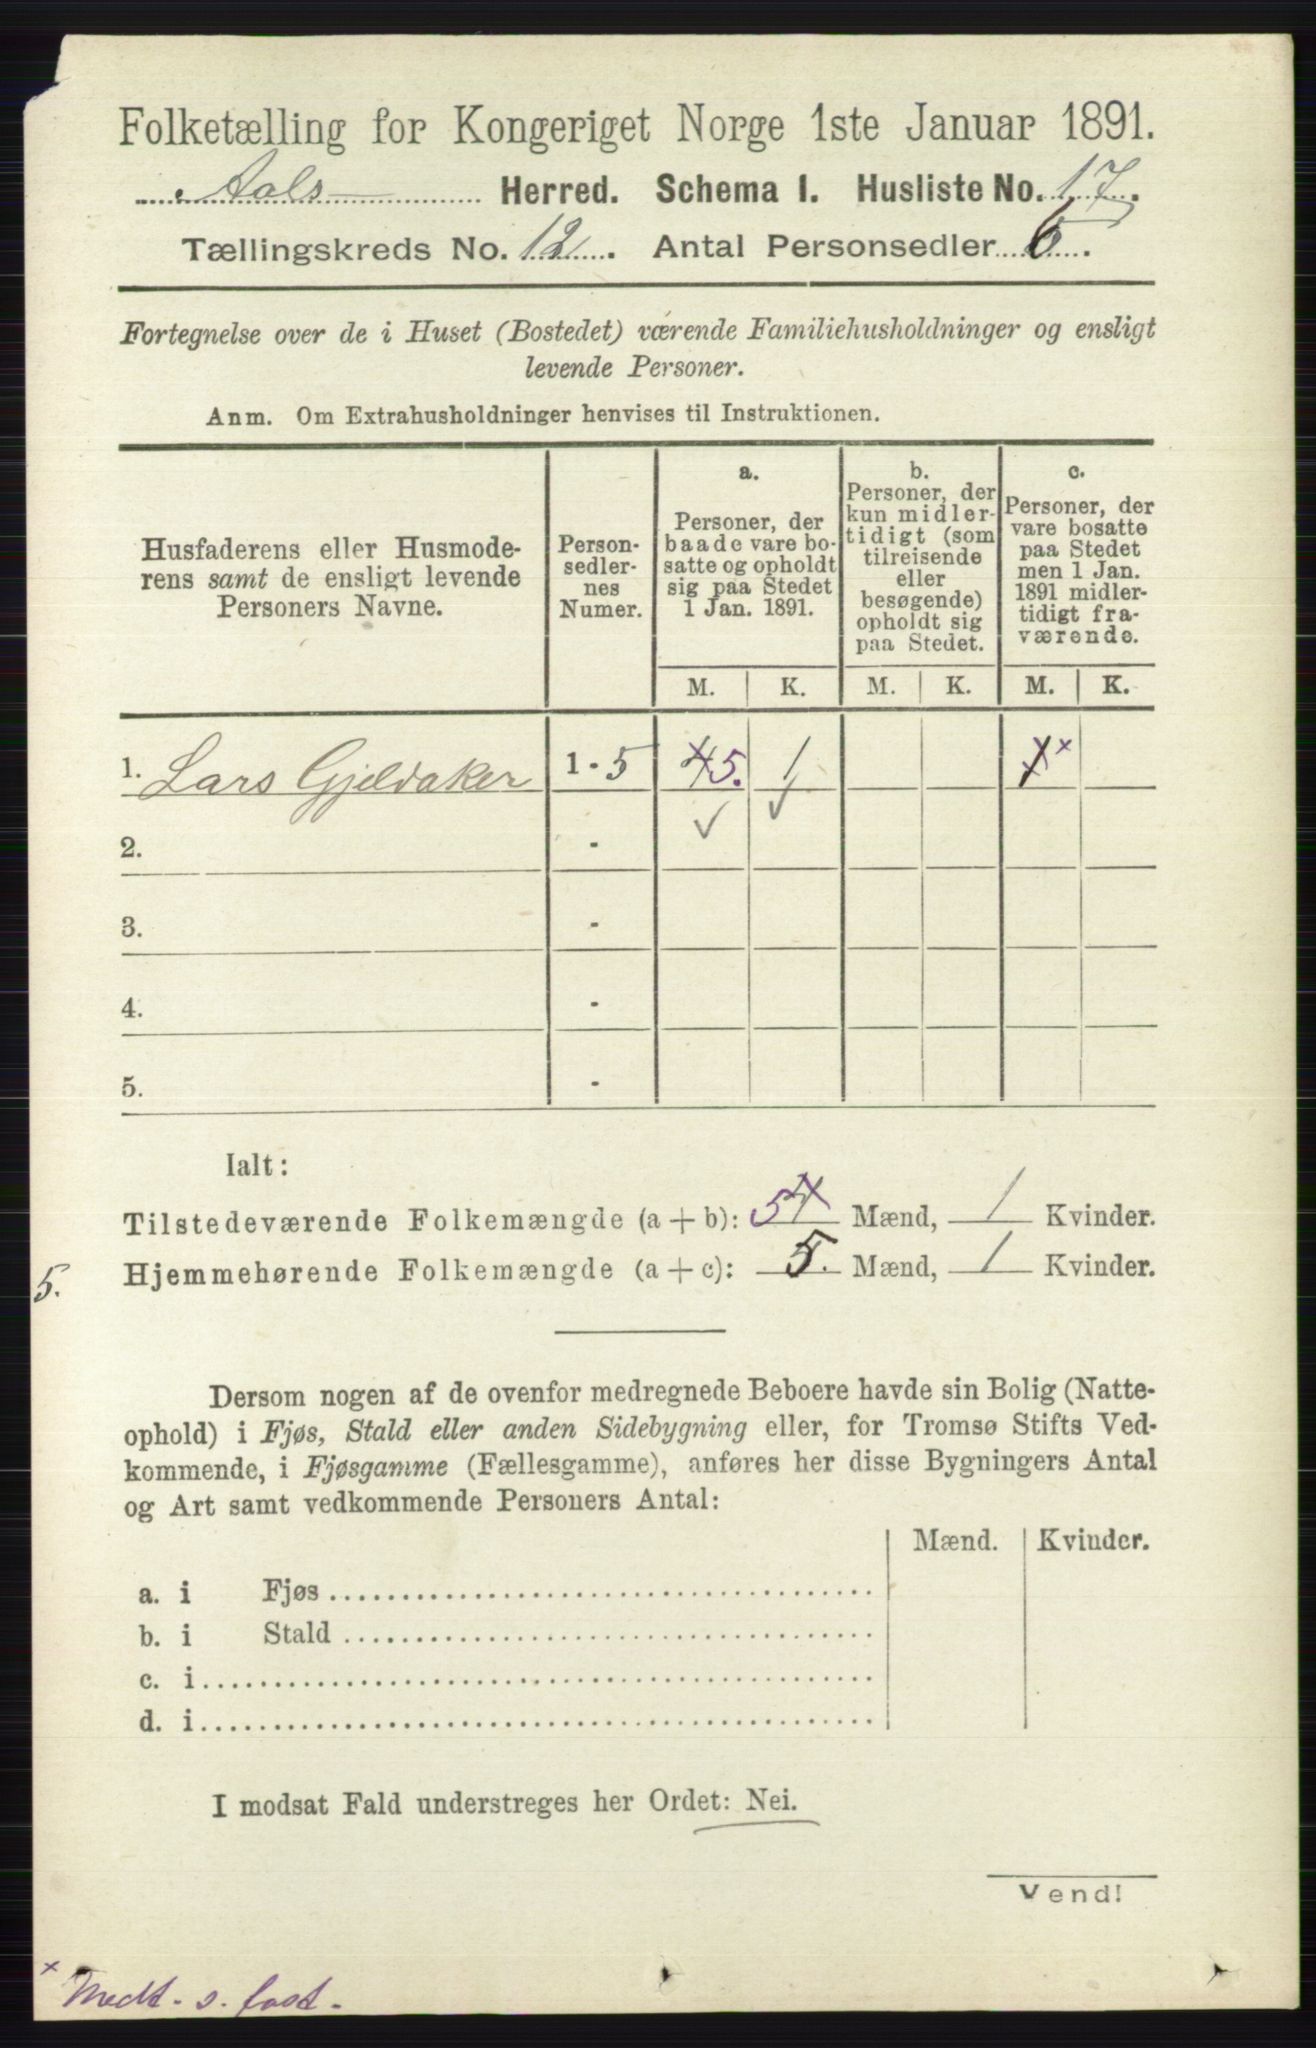 Folketælling for Kongeriget Norge 1ste Januar 1891.
Aals Herred. Schema I. Husliste No. 17.
Tællingskreds No. 12. Antal Personsedler 6.
Fortegnelse over de i Huset (Bostedet) værende Familiehusholdninger og ensligt
levende Personer.
Anm. Om Extrahusholdninger henvises til Instruktionen.
Husfaderens eller Husmode-
rens samt de ensligt levende
Personers Navne.
Person-
sedler-
nes
Numer.
a.
Personer, der
baade vare bo-
satte og opholdt
sig paa Stedet
1 Jan. 1891.
b.
Personer, der
kun midler-
tidigt (som
tilreisende
eller
besøgende)
opholdt sig
paa Stedet.
c.
Personer, der
vare bosatte
paa Stedet
men 1 Jan.
1891 midler-
tidigt fra-
værende.
M. K. M. K. M. K.
1. Lars Gjeldaker 1 - 5 4 5. 1 1 x
2. -
3. -
4. -
5. -
Ialt:
Tilstedeværende Folkemængde (a + b): 5 4 Mænd, 1 Kvinder.
5. Hjemmehørende Folkemængde (a + c): 5. Mænd, 1 Kvinder.
Dersom nogen af de ovenfor medregnede Beboere havde sin Bolig (Natte-
ophold) i Fjøs, Stald eller anden Sidebygning eller, for Tromsø Stifts Ved-
kommende, i Fjøsgamme (Fællesgamme), anføres her disse Bygningers Antal
og Art samt vedkommende Personers Antal:
Mænd. Kvinder.
a. i Fjøs
b. i Stald
c. i
d. i
I modsat Fald understreges her Ordet: Nei.
Vend!
x Medt. s. fast.